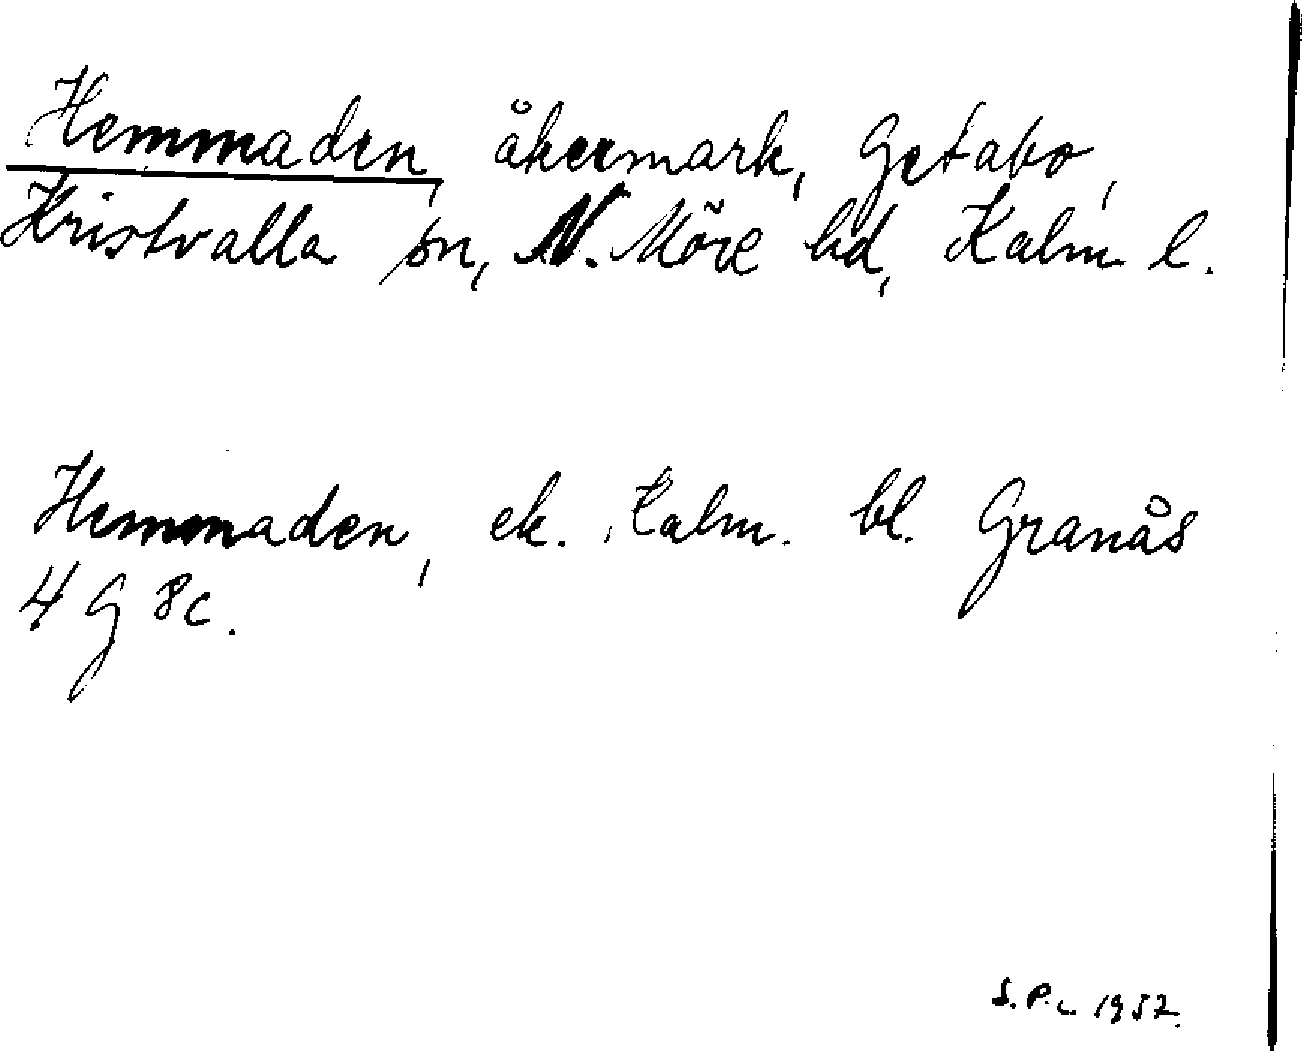 Hemmaden, åkermark, Getabo,
Kristvalla sn, N. Möre hd, Kalm l.
Hemmaden, ek. Kalm. bl. Granås
4 G 8c.
S.P. 1957.